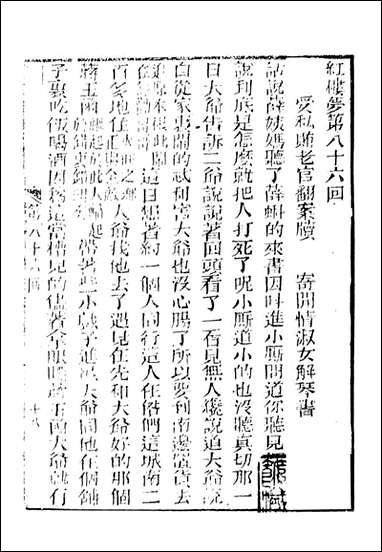 紅樓夢第八十六回
受私賄老官翻案牘 寄閒情淑女解琴書
話說薛姨媽聽了薛蝌的來書因呌進小厮問道你聽見
說到底是怎麽就把人打死了呢小厮道小的也沒聽真切那一
日大爺告訴二爺說說著回頭看了一看見無人纔說道大爺說
自從家裏鬧的忒利害大爺也沒心腸了所以要到南邊置貨去
這日想著約一個人同行這人在偺們這城南二
百多地住大爺找他去了遇見在先和大爺好的那個
蔣玉函帶著些小戲子進城大爺同他在個舖
子裏吃飯喝酒因爲這當槽兒的儘著拿眼瞟蔣玉函大爺就有
第八十六回